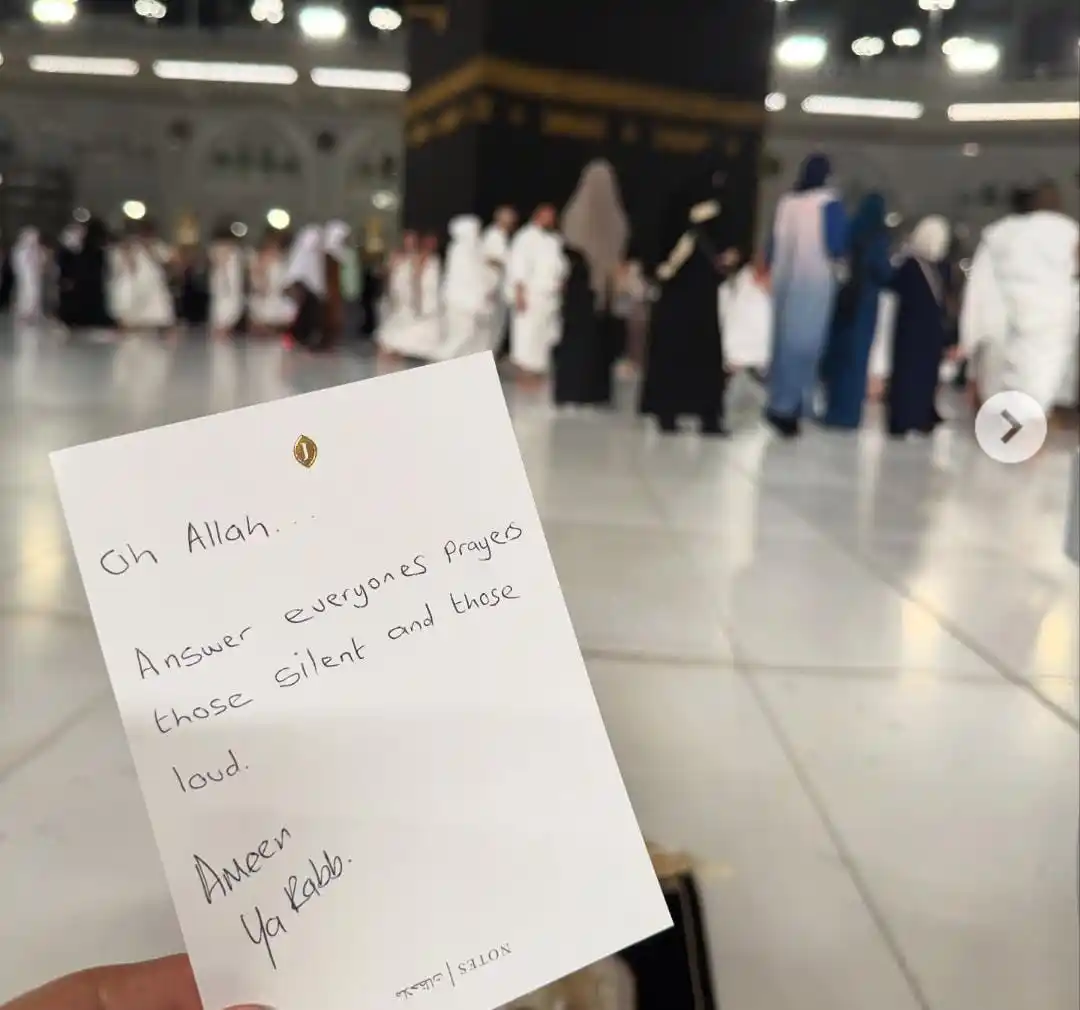 Oh Allah...
Answer everyones Prayers
those silent and those
loud.
Ameen
Ya Rabb.
NOTES | ملاحظات